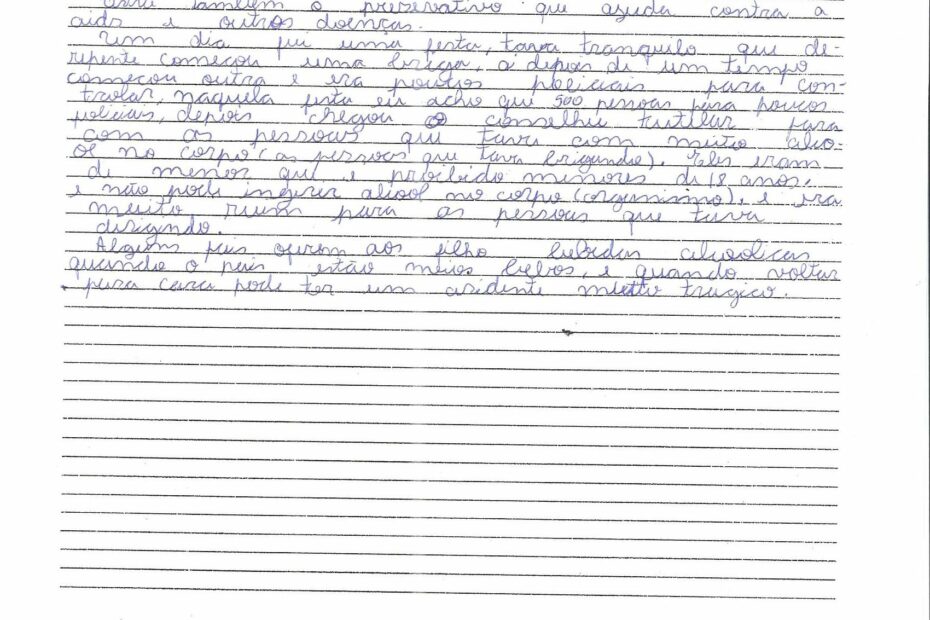 também o preservativo que ajuda contra a
aids e outros doenças.
Um dia fui uma festa, tava tranquilo que de-
repente começou uma briga, a depois de um tempo
começou outra e era poucos policiais para con-
trolar, naquela festa eu acho que 500 pessoas para poucos
policiais, depois chegou o conselho tutelar para
com as pessoas que tava com muito álco-
ol no corpo (as pessoas que tava brigando). Eles eram
de menor que e proibido menores de 18 anos,
e não pode ingerir alcool no corpo (organismo), e era
muito ruim para as pessoas que tava
dirigindo.
Alguns pais ofirem aos filho bebidas alcoolicas
quando o pais estão meios bebos, e quando voltar
para casa pode ter um asidente muito tragico.